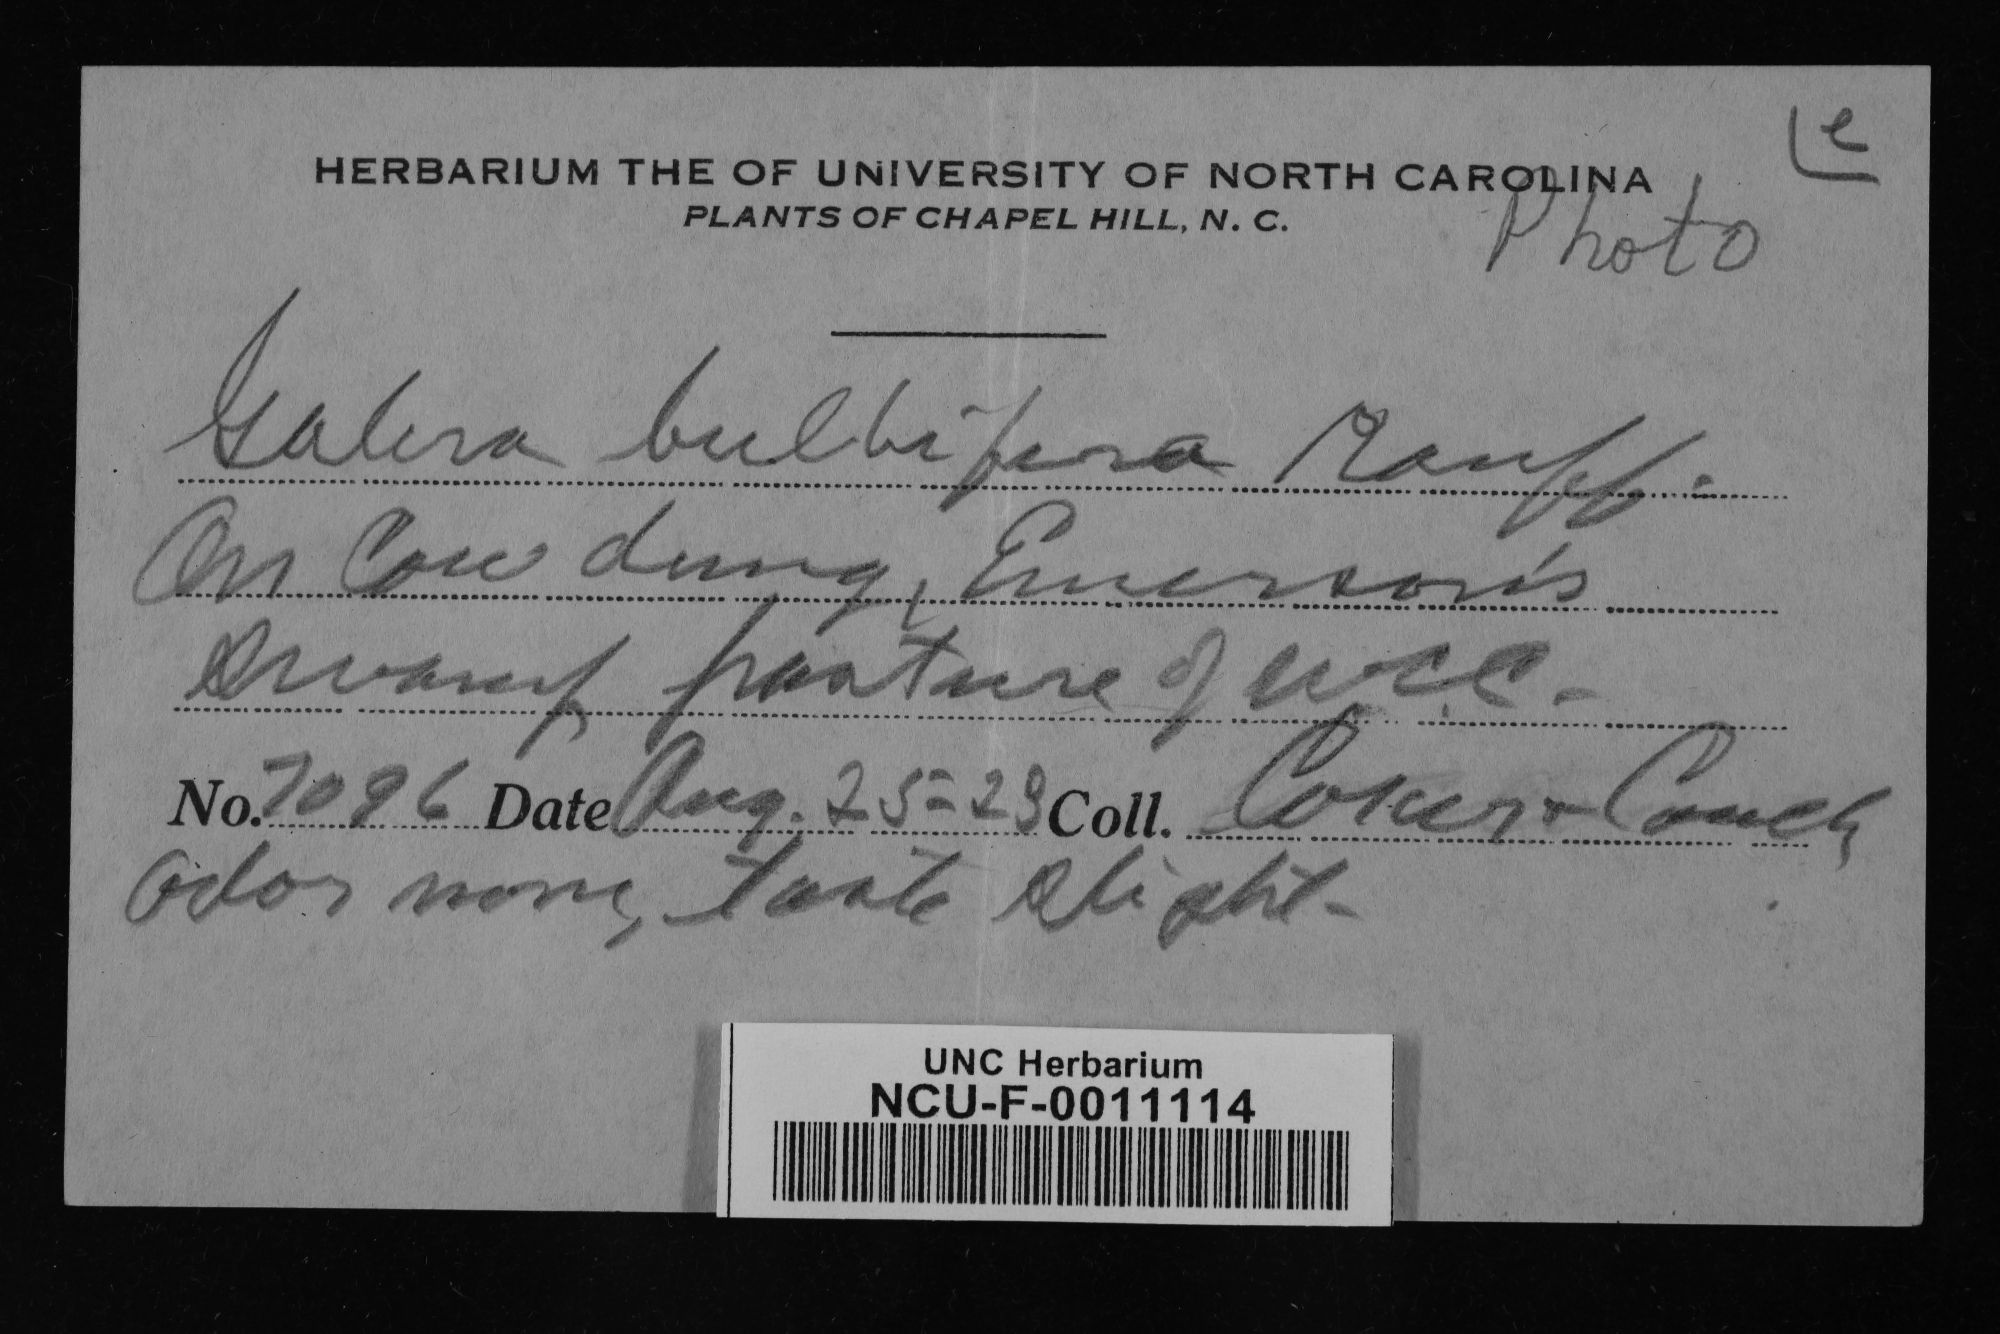 HERBARIUM THE OF UNIVERSITY OF NORTH CAROLINA
PLANTS OF CHAPEL HILL, N. C.
e
Photo
Galera bulbifera Kauff.
On Cow dung, Emerson's
Swamp pasture of W.C.C.
No. 7096 Date Aug. 25-23 Coll. Coker & Couch
Odor none, taste slight-
UNC Herbarium
NCU-F-0011114